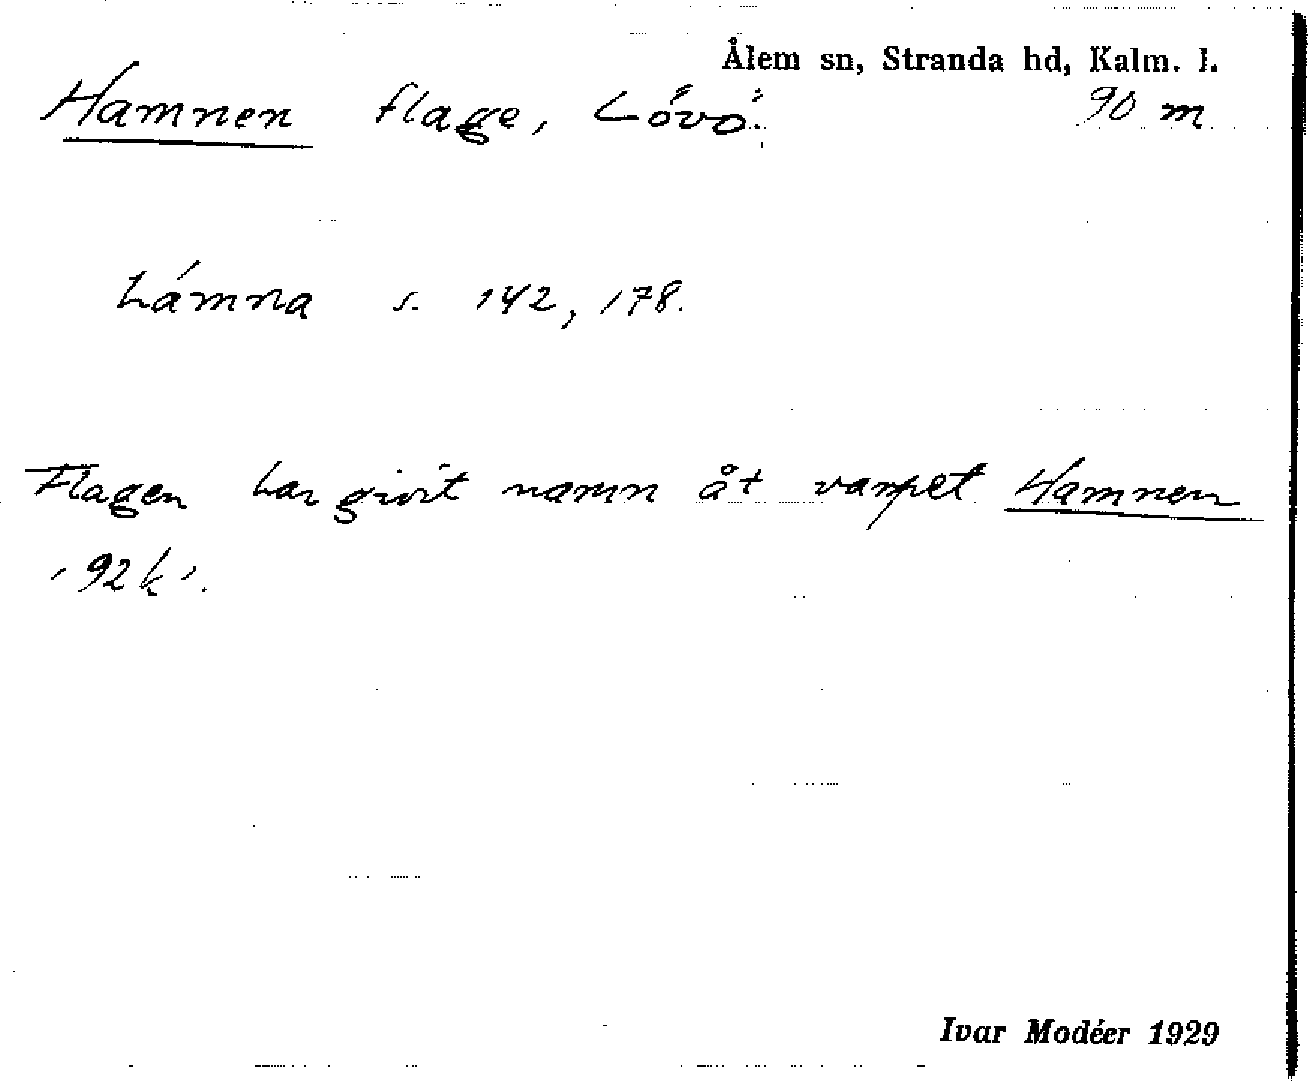 Ålem sn, Stranda hd, Kalm. l.
Hamnen flage, Lövö. 90 m
hámna s. 142, 178.
Flagen har givit namn åt varpet Hamnen
'92k'.
Ivar Modéer 1929